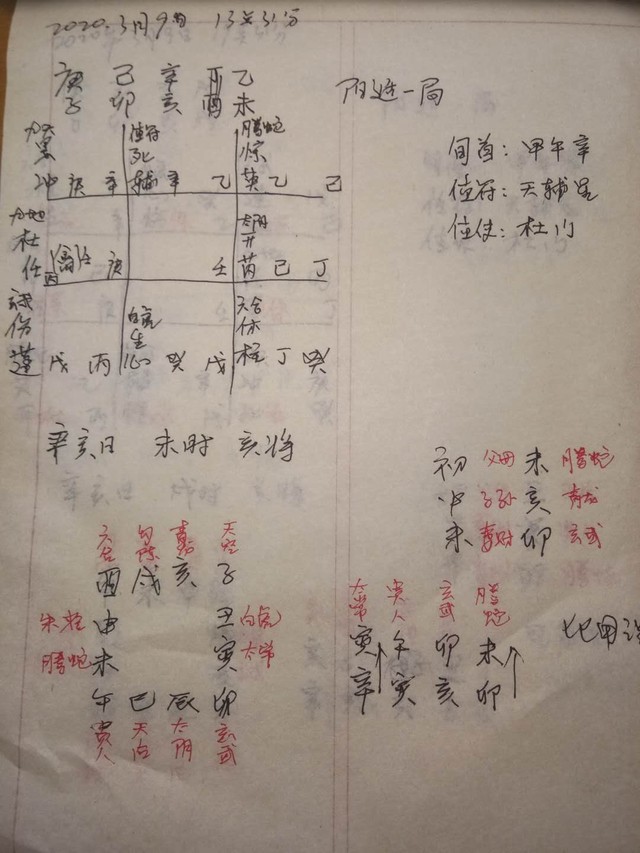 2020.3月9日 13点31分
庚 己 辛 丁 乙
子 卯 亥 酉 未
阳遁一局
旬首：甲午辛
值符：天辅星
值使：杜门
九天 值符 腾蛇
景 死 惊
冲 庚 辛 辅 辛 乙 英 乙 己
九地 太阴
杜 开
任 丙 禽 壬 庚 壬 芮 己 丁
玄武 白虎 六合
伤 生 休
蓬 戊 丙 心 癸 戊 柱 丁 癸
辛亥日 未时 亥将
初 父母 未 腾蛇
中 子孙 亥 青龙
末 妻财 卯 玄武
六合 勾陈 青龙 天空
酉 戌 亥 子
朱雀 申 丑 白虎
腾蛇 未 寅 太常
午 巳 辰 卯
贵人 天后 太阴 玄武
太常 贵人 玄武 腾蛇
寅 午 卯 未
辛 寅 亥 卯